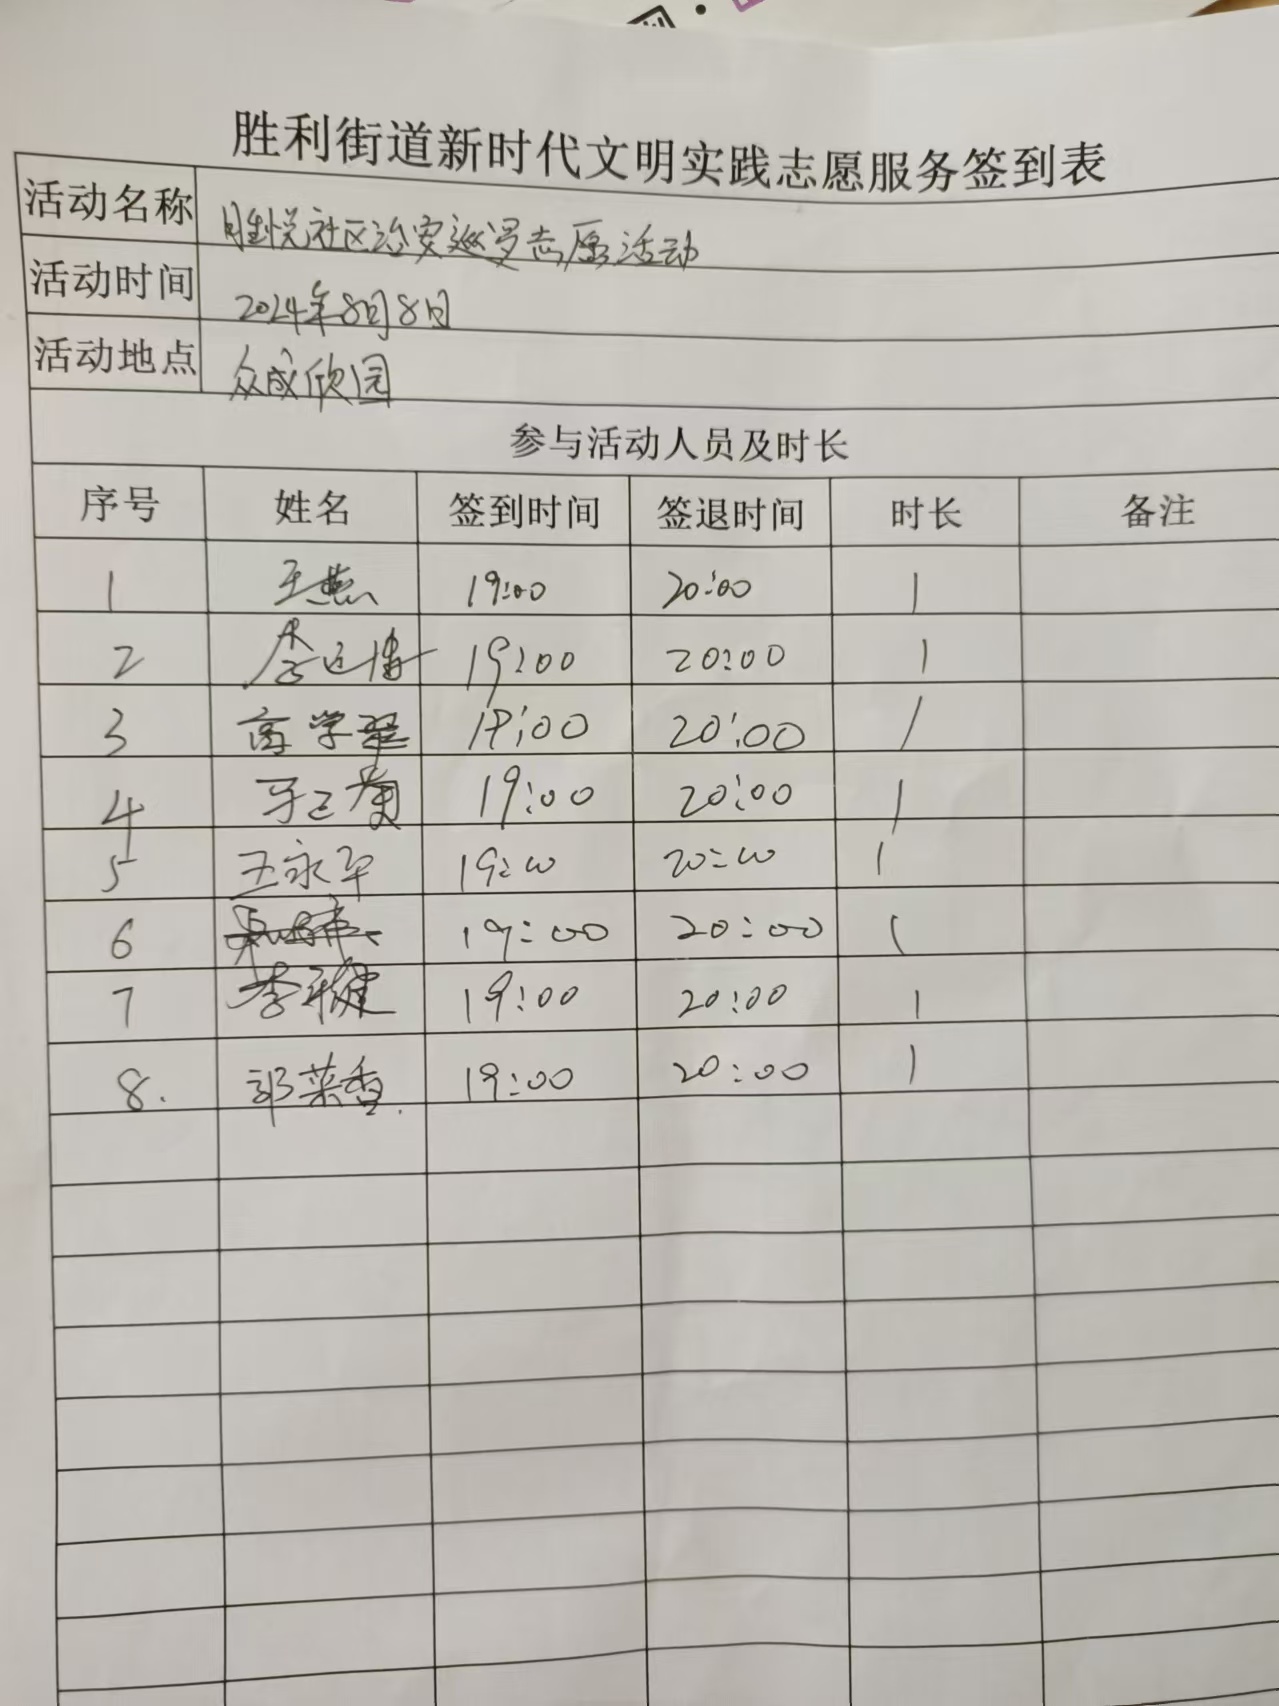 胜利街道新时代文明实践志愿服务签到表
活动名称 胜悦社区治安巡逻志愿活动
活动时间 2024年8月8日
活动地点 众成欣园
参与活动人员及时长
序号 姓名 签到时间 签退时间 时长 备注
1 王燕 19:00 20:00 1
2 李 19:00 20:00 1
3 高学翠 19:00 20:00 1
4 19:00 20:00 1
5 王永平 19:00 20:00 1
6 19:00 20:00 1
7 李雅健 19:00 20:00 1
8. 郭菜香. 19:00 20:00 1